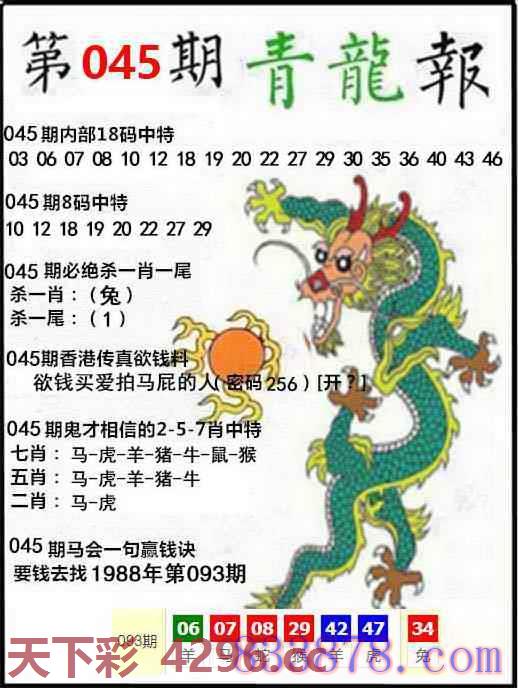 第045期 青龍報
045期内部18码中特
03 06 07 08 10 12 18 19 20 22 27 29 30 35 36 40 43 46
045期8码中特
10 12 18 19 20 22 27 29
045 期必绝杀一肖一尾
杀一肖：(兔)
杀一尾：(1)
045期香港传真欲钱料
欲钱买爱拍马屁的人(密码256)[开?]
045期鬼才相信的2-5-7肖中特
七肖：马-虎-羊-猪-牛-鼠-猴
五肖：马-虎-羊-猪-牛
二肖：马-虎
045期马会一句赢钱诀
要钱去找1988年第093期
093期 06 07 08 29 42 47 34
羊 马 蛇 猴 羊 虎 兔
天下彩 4296.cc